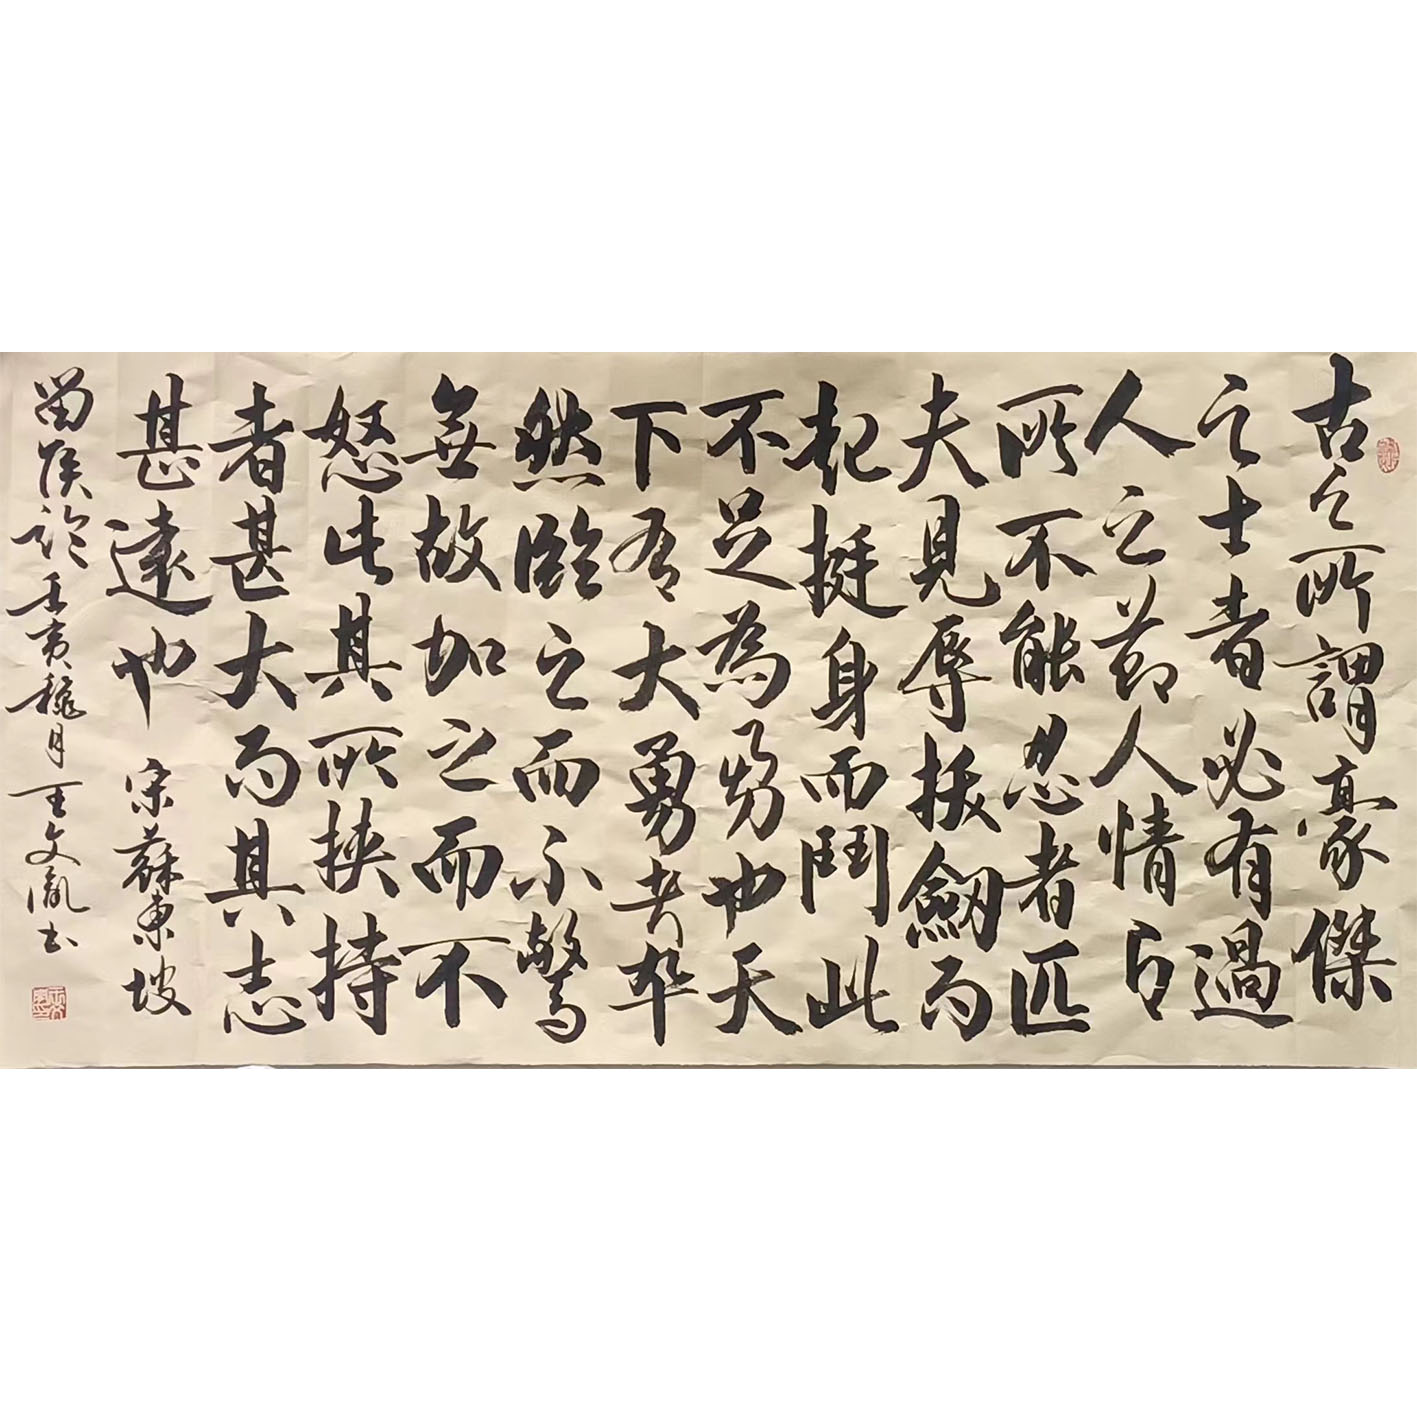 古之所謂豪傑
之士者必有過
人之節人情有
所不能忍者匹
夫見辱拔劔而
起挺身而鬥此
不足為勇也天
下有大勇者卒
然臨之而不驚
無故加之而不
怒此其所挾持
者甚大而其志
甚遠也 宋蘇東坡
留侯論壬寅穐月王文胤書